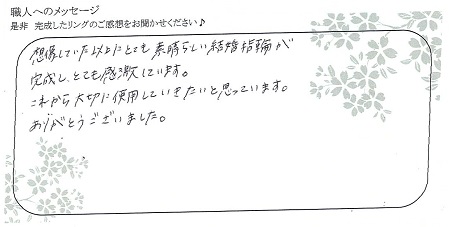 職人へのメッセージ
是非 完成したリングのご感想をお聞かせください♪
想像していた以上にとても素晴らしい結婚指輪が
完成し、とても感激しています。
これから大切に使用していきたいと思っています。
ありがとうございました。